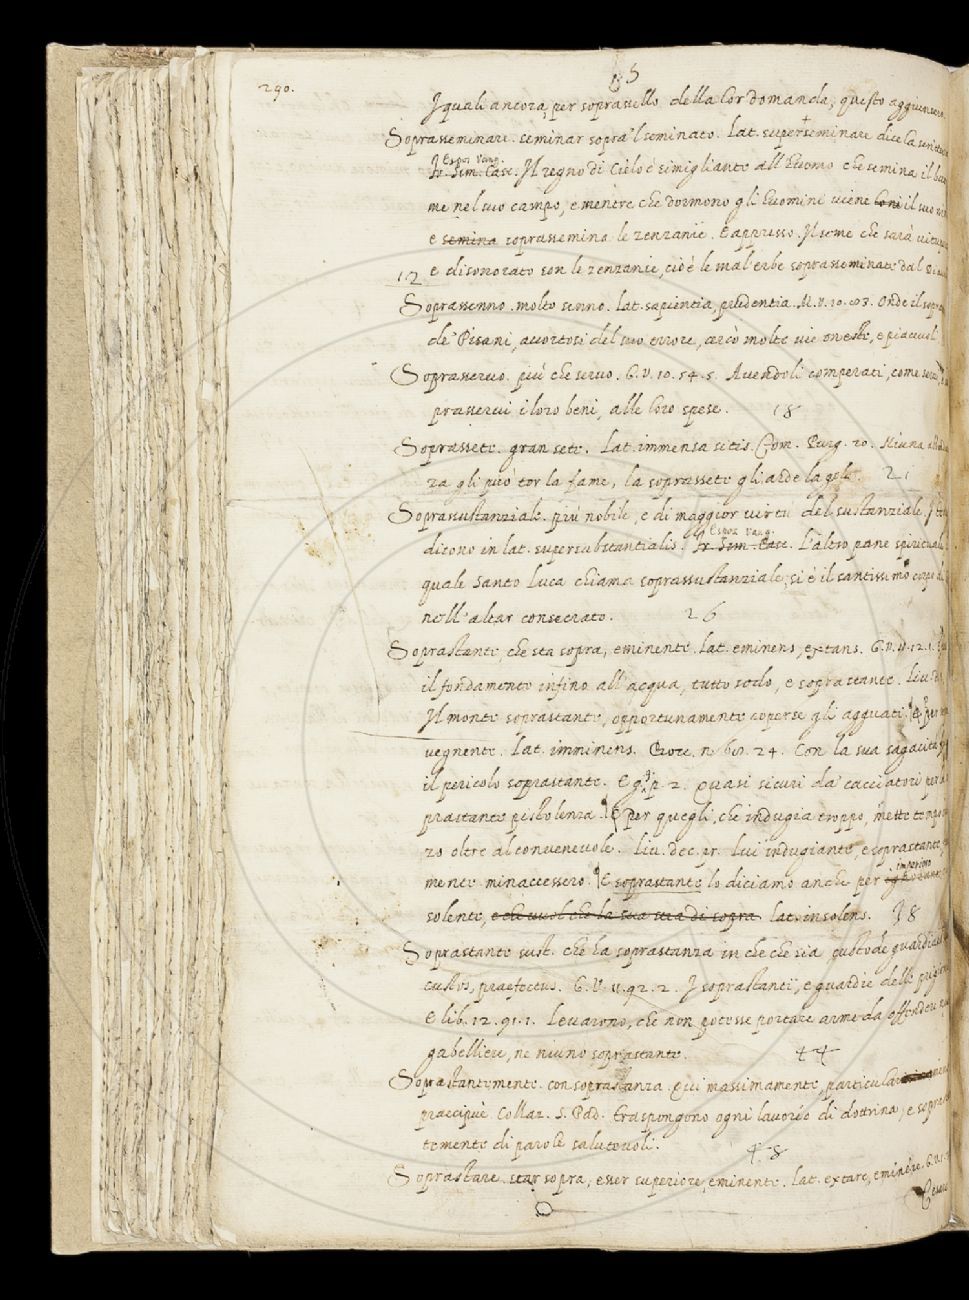 290.
I quali ancora, per soprassello della lor domanda, questo aggiunsero
Soprasseminare. seminar sopra 'l seminato. Lat. superseminare dice la scrittura
Espos. Vang.
Fr. Sim. Casc. Il regno di Cielo è simigliante all'huomo che semina il buon
me nel suo campo, e mentre che dormono gli huomini viene il suo
e semina soprassemina le zenzanie. E appresso. Il seme che sarà
12 e disonorato son le zenzanie, cioè le mal'erbe soprasseminate dal
Soprassenno. molto senno. Lat. sapientia, prudentia. M. V. 10. 83. Onde il sopra
de' Pisani, accortosi del suo errore, cercò molte vie oneste, e piacevoli
Soprasservo. più che servo. G. V. 10. 54. 5. Avendoli comperati, come servi,
prasservi i loro beni, alle loro spese. 18
Soprassete. gran sete. Lat. immensa sitis. Com. Purg. 20. Niuna
za gli può tor la fame, la soprassete gli arde la gola. 21
Soprassustanziale. più nobile, e di maggior virtù del sustanziale.
Espos. Vang.
dicono in lat. supersubstantialis. Fr. Sim. Casc. L'altro pane spirituale
quale Santo Luca chiama soprassustanziale, si è il santissimo corpo di
nell'altar consecrato. 26
Soprastante, che sta sopra, eminente. Lat. eminens, extans. G. V. 11. 12. 1.
il fondamento infino all'acqua, tutto sodo, e soprastante. Liv.
Il monte soprastante, opportunamente coperse gli agguati. E per
vegnente. Lat. imminens. Bocc. n. 60. 24. Con la sua sagacità
il pericolo soprastante. E g. p. 2. Quasi sicuri da' cacciatori per
prastante pistolenza. E per quegli, che indugia troppo, mette tempo
zo oltre al convenevole. Liv. dec. pr. Lui indugiante, e soprastante,
imperioso
mente minaccessero. E soprastante lo diciamo anche per
solente, e che vuol che la sua stia di sopra. lat. insolens. 38
Soprastante sust. che ha soprastanza in che che sia, custode guardiano
custos, praefectus. G. V. 11. 92. 2. I soprastanti, e guardie delle prigioni
E lib. 12. 91. 1. Levarono, che non potesse portare arme da offendere
gabelliere, ne niuno soprastante. 44
Soprastantemente. con soprastanza. Qui massimamente, particular
praecipuè. Collaz. S. Pad. Traspongono ogni lavorio di dottrina, e sopra
temente di parole salutevoli. 48
Soprastare. star sopra, esser superiore, eminente. lat. extare, eminere. G. V.